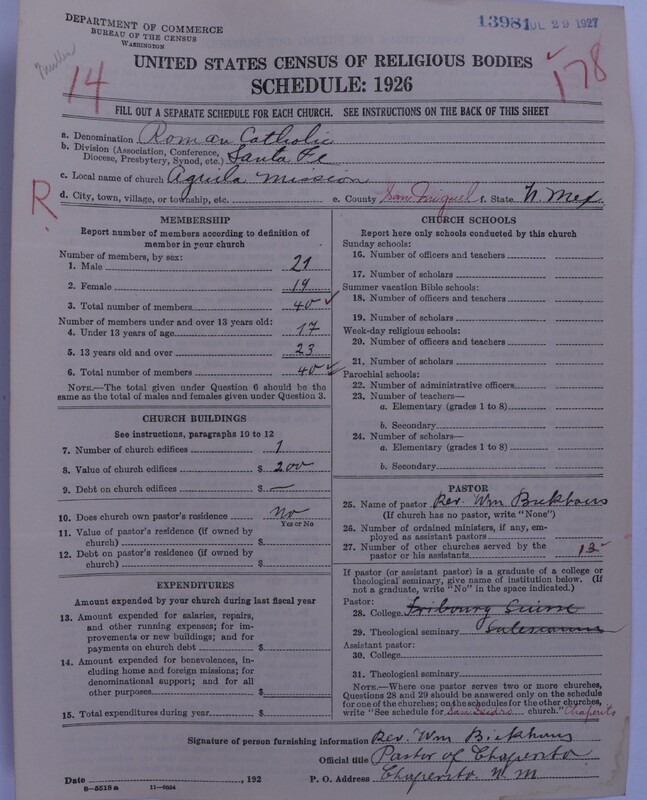 DEPARTMENT OF COMMERCE
BUREAU OF THE CENSUS
WASHINGTON
13981 JUL 29 1927
14
178
UNITED STATES CENSUS OF RELIGIOUS BODIES
SCHEDULE: 1926
FILL OUT A SEPARATE SCHEDULE FOR EACH CHURCH. SEE INSTRUCTIONS ON THE BACK OF THIS SHEET
a. Denomination Roman Catholic
b. Division (Association, Conference, Diocese, Presbytery, Synod, etc.) Santa Fe
c. Local name of church Aguila Mission
R
d. City, town, village, or township, etc. e. County San Miguel f. State N. Mex
MEMBERSHIP
Report number of members according to definition of
member in your church
Number of members, by sex:
1. Male 21
2. Female 19
3. Total number of members 40
Number of members under and over 13 years old:
4. Under 13 years of age 17
5. 13 years old and over 23
6. Total number of members 40
NOTE.—The total given under Question 6 should be
same as the total of males and females given under Question 3.
CHURCH BUILDINGS
See instructions, paragraphs 10 to 12
7. Number of church edifices 1
8. Value of church edifices $ 200
9. Debt on church edifices $ —
10. Does church own pastor's residence No
Yes or No
11. Value of pastor's residence (if owned by
church) $
12. Debt on pastor's residence (if owned by
church) $
EXPENDITURES
Amount expended by your church during last fiscal year
13. Amount expended for salaries, repairs,
and other running expenses; for im-
provements or new buildings; and for
payments on church debt $
14. Amount expended for benevolences, in-
cluding home and foreign missions; for
denominational support; and for all
other purposes $
15. Total expenditures during year $
CHURCH SCHOOLS
Report here only schools conducted by this church
Sunday schools:
16. Number of officers and teachers
17. Number of scholars
Summer vacation Bible schools:
18. Number of officers and teachers
19. Number of scholars
Week-day religious schools:
20. Number of officers and teachers
21. Number of scholars
Parochial schools:
22. Number of administrative officers
23. Number of teachers—
a. Elementary (grades 1 to 8)
b. Secondary
24. Number of scholars—
a. Elementary (grades 1 to 8)
b. Secondary
PASTOR
25. Name of pastor Rev. Wm Bickhaus
(If church has no pastor, write "None")
26. Number of ordained ministers, if any, em-
ployed as assistant pastors
27. Number of other churches served by the
pastor or his assistants 12
If pastor (or assistant pastor) is a graduate of a college or
theological seminary, give name of institution below. (If
not a graduate, write "No" in the space indicated.)
Pastor:
28. College Fribourg Suisse
29. Theological seminary Salesianum
Assistant pastor:
30. College
31. Theological seminary
NOTE.—Where one pastor serves two or more churches,
Questions 28 and 29 should be answered only on the schedule
for one of the churches; on the schedules for the other churches,
write "See schedule for San Isidro church." Chaperito
Signature of person furnishing information Rev. Wm Bickhaus
Official title Pastor of Chaperito
Date , 192 P. O. Address Chaperito N M
8—5518 a 11—6624